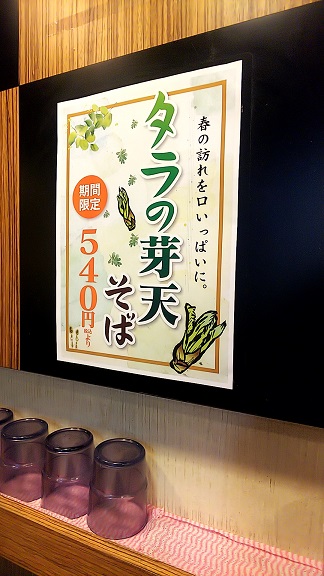 春の訪れを口いっぱいに。
タラの芽天
そば
期間
限定
540円
税込
より